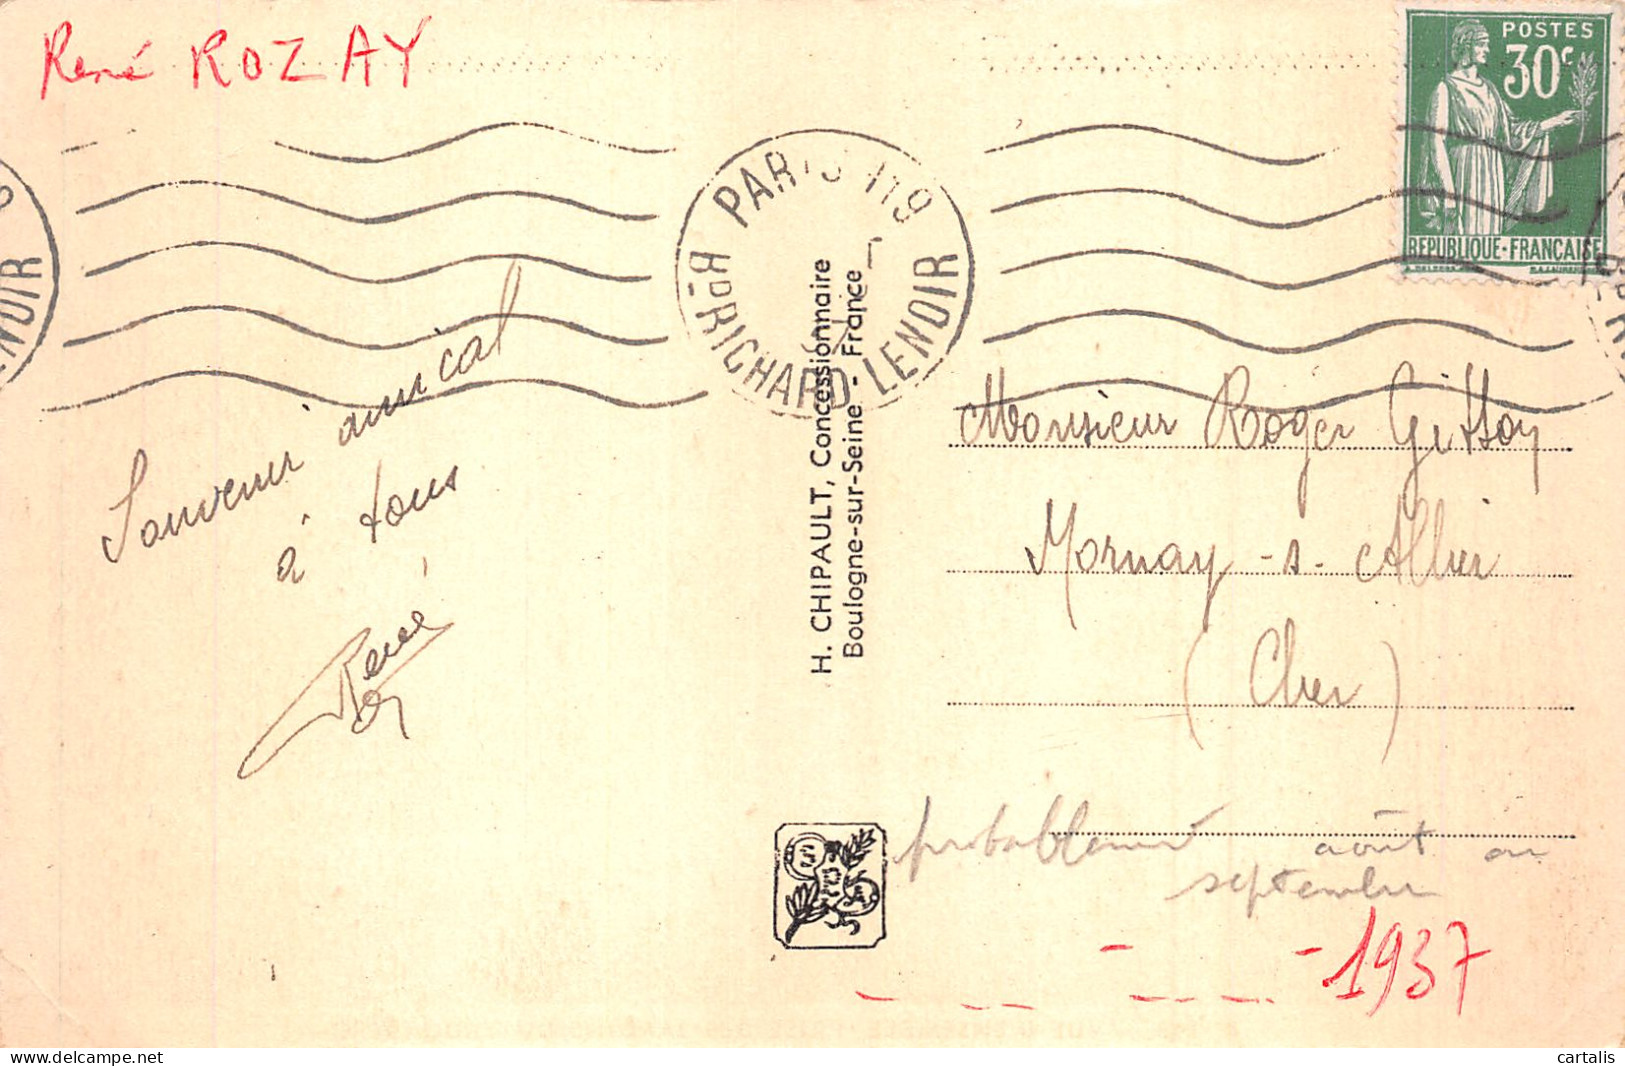 René ROZAY
POSTES
30c
REPUBLIQUE-FRANCAISE
PARIS 119
Bd RICHARD-LENOIR
LENOIR
Souvenir amical
à tous
René
H. CHIPAULT, Concessionnaire
Boulogne-sur-Seine - France
Monsieur Roger Gitton
Mornay -s- Allier
(Cher)
août ou
septembre
1937
cartalis